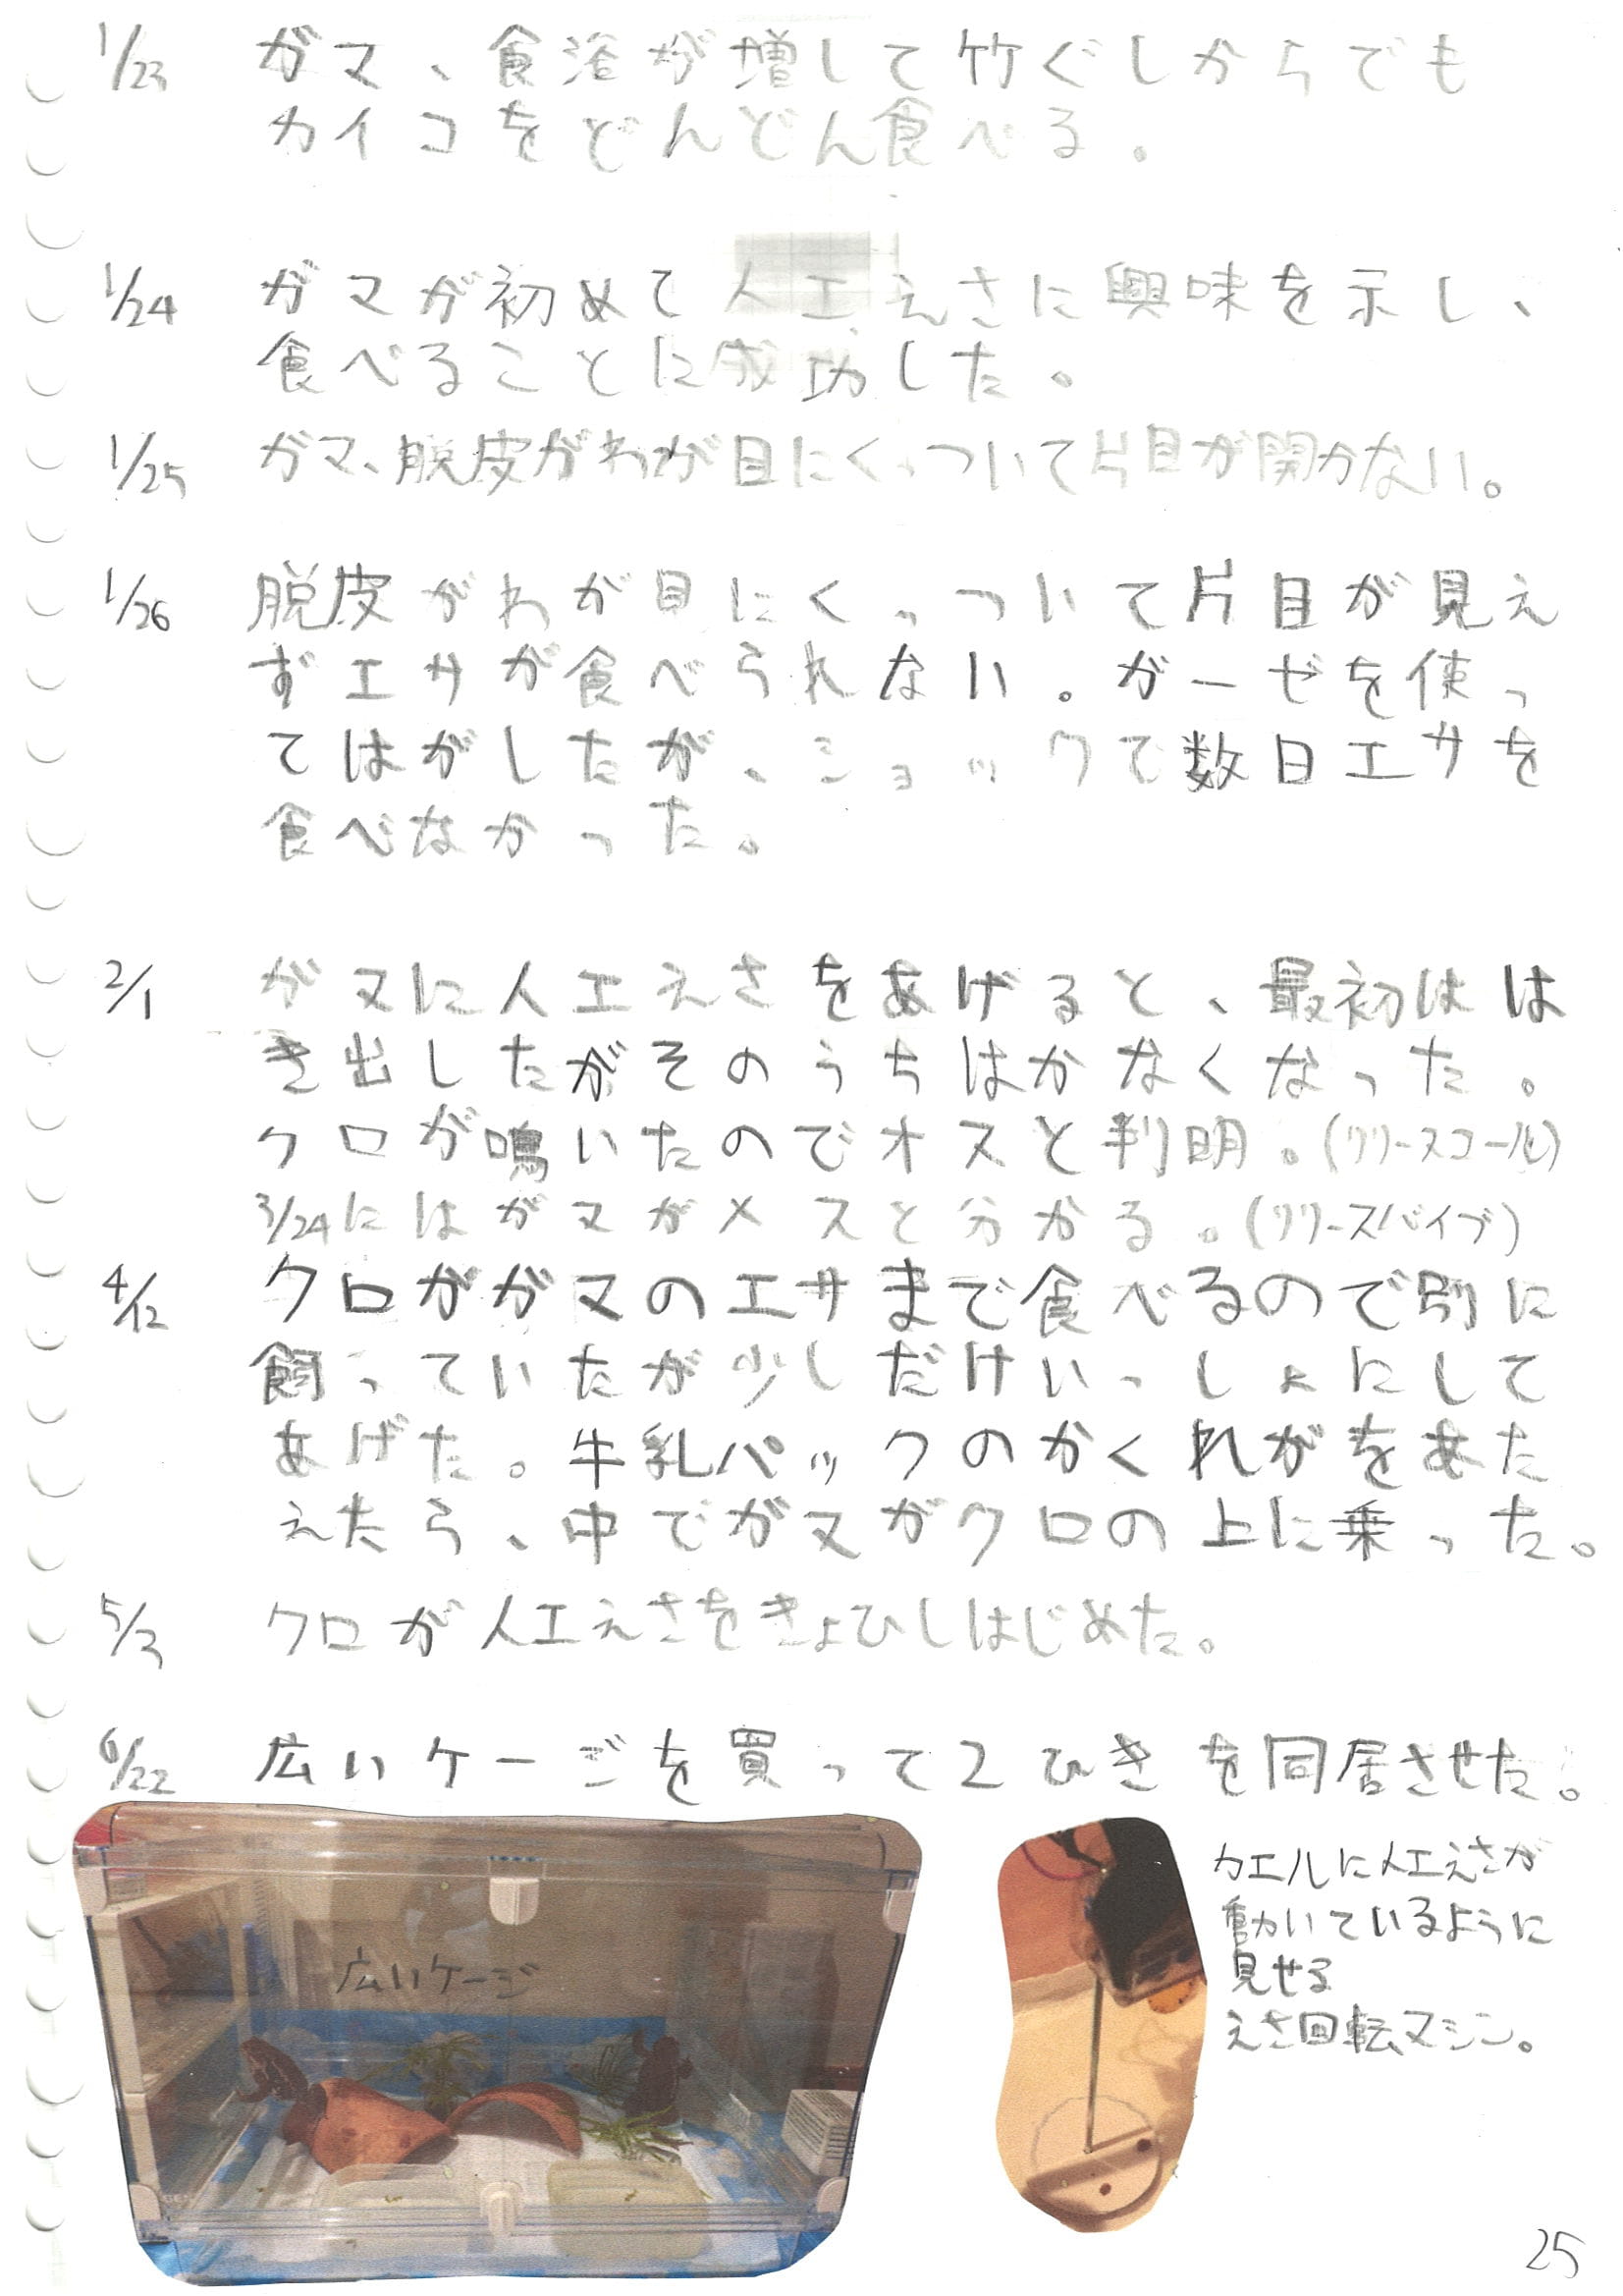 1/23 ガマ、食浴が増して竹ぐしからでも
カイコをどんどん食べる。
1/24 ガマが初めて人工えさに興味を示し、
食べることに成功した。
1/25 ガマ、脱皮がわが目にくっついて片目が開かない。
1/26 脱皮がわが目にくっついて片目が見え
ずエサが食べられない。ガーゼを使っ
てはがしたが、ショックで数日エサを
食べなかった。
2/1 ガマに人工えさをあげると、最初はは
き出したがそのうちはかなくなった。
クロが鳴いたのでオスと判明。(リリースコール)
3/24にはガマがメスと分かる。(リリースバイブ)
4/12 クロがガマのエサまで食べるので別に
飼っていたが少しだけいっしょにして
あげた。牛乳パックのかくれがをあた
えたら、中でガマがクロの上に乗った。
5/3 クロが人工えさをきょひしはじめた。
6/22 広いケージを買って2ひきを同居させた。
広いケージ
カエルに人工えさが
動いているように
見せる
えさ回転マシン。
25